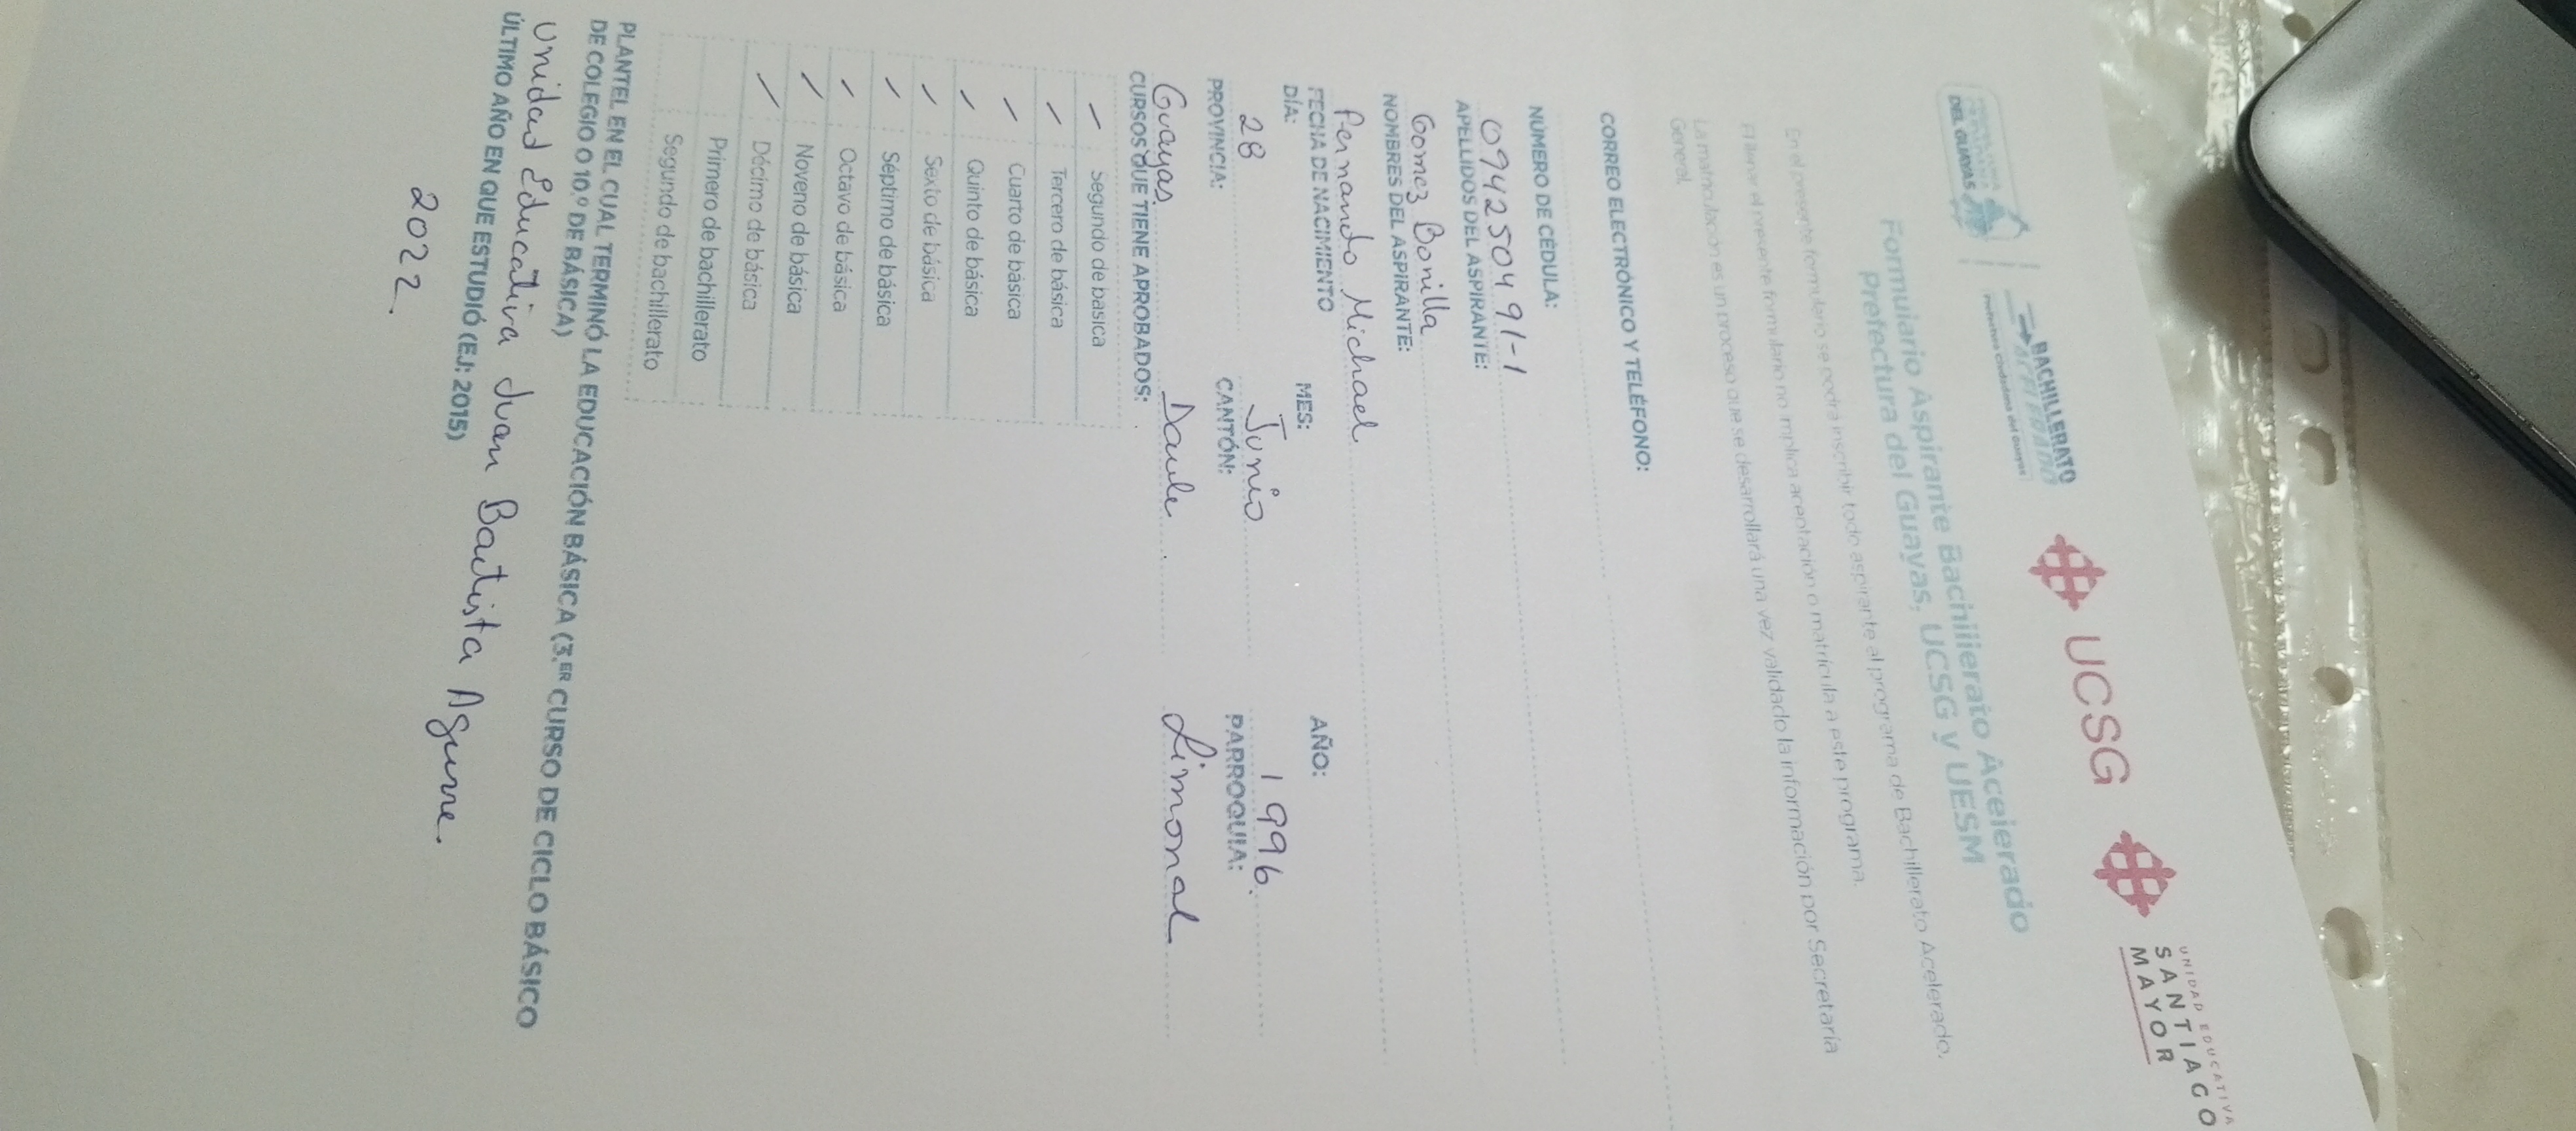 PREFECTURA
DEL GUAYAS
BACHILLERATO
ACELERADO
Prefectura Ciudadana del Guayas
UCSG
UNIDAD EDUCATIVA
SANTIAGO
MAYOR
Formulario Aspirante Bachillerato Acelerado
Prefectura del Guayas, UCSG y UESM
En el presente formulario se podrá inscribir todo aspirante al programa de Bachillerato Acelerado.
El llenar el presente formulario no implica aceptación o matrícula a este programa.
La matriculación es un proceso que se desarrollará una vez validado la información por Secretaría
General.
CORREO ELECTRÓNICO Y TELÉFONO:
NÚMERO DE CÉDULA:
094250491-1
APELLIDOS DEL ASPIRANTE:
Gomez Bonilla
NOMBRES DEL ASPIRANTE:
Fernando Michael
FECHA DE NACIMIENTO
DÍA: MES: AÑO:
28 Junio 1996.
PROVINCIA: CANTÓN: PARROQUIA:
Guayas. Daule. Limonal
CURSOS QUE TIENE APROBADOS:
Segundo de básica
Tercero de básica
Cuarto de básica
Quinto de básica
Sexto de básica
Séptimo de básica
Octavo de básica
Noveno de básica
Décimo de básica
Primero de bachillerato
Segundo de bachillerato
PLANTEL EN EL CUAL TERMINÓ LA EDUCACIÓN BÁSICA (3.ER CURSO DE CICLO BÁSICO
DE COLEGIO O 10.º DE BÁSICA)
Unidad Educativa Juan Bautista Aguirre.
ÚLTIMO AÑO EN QUE ESTUDIÓ (EJ: 2015)
2022.